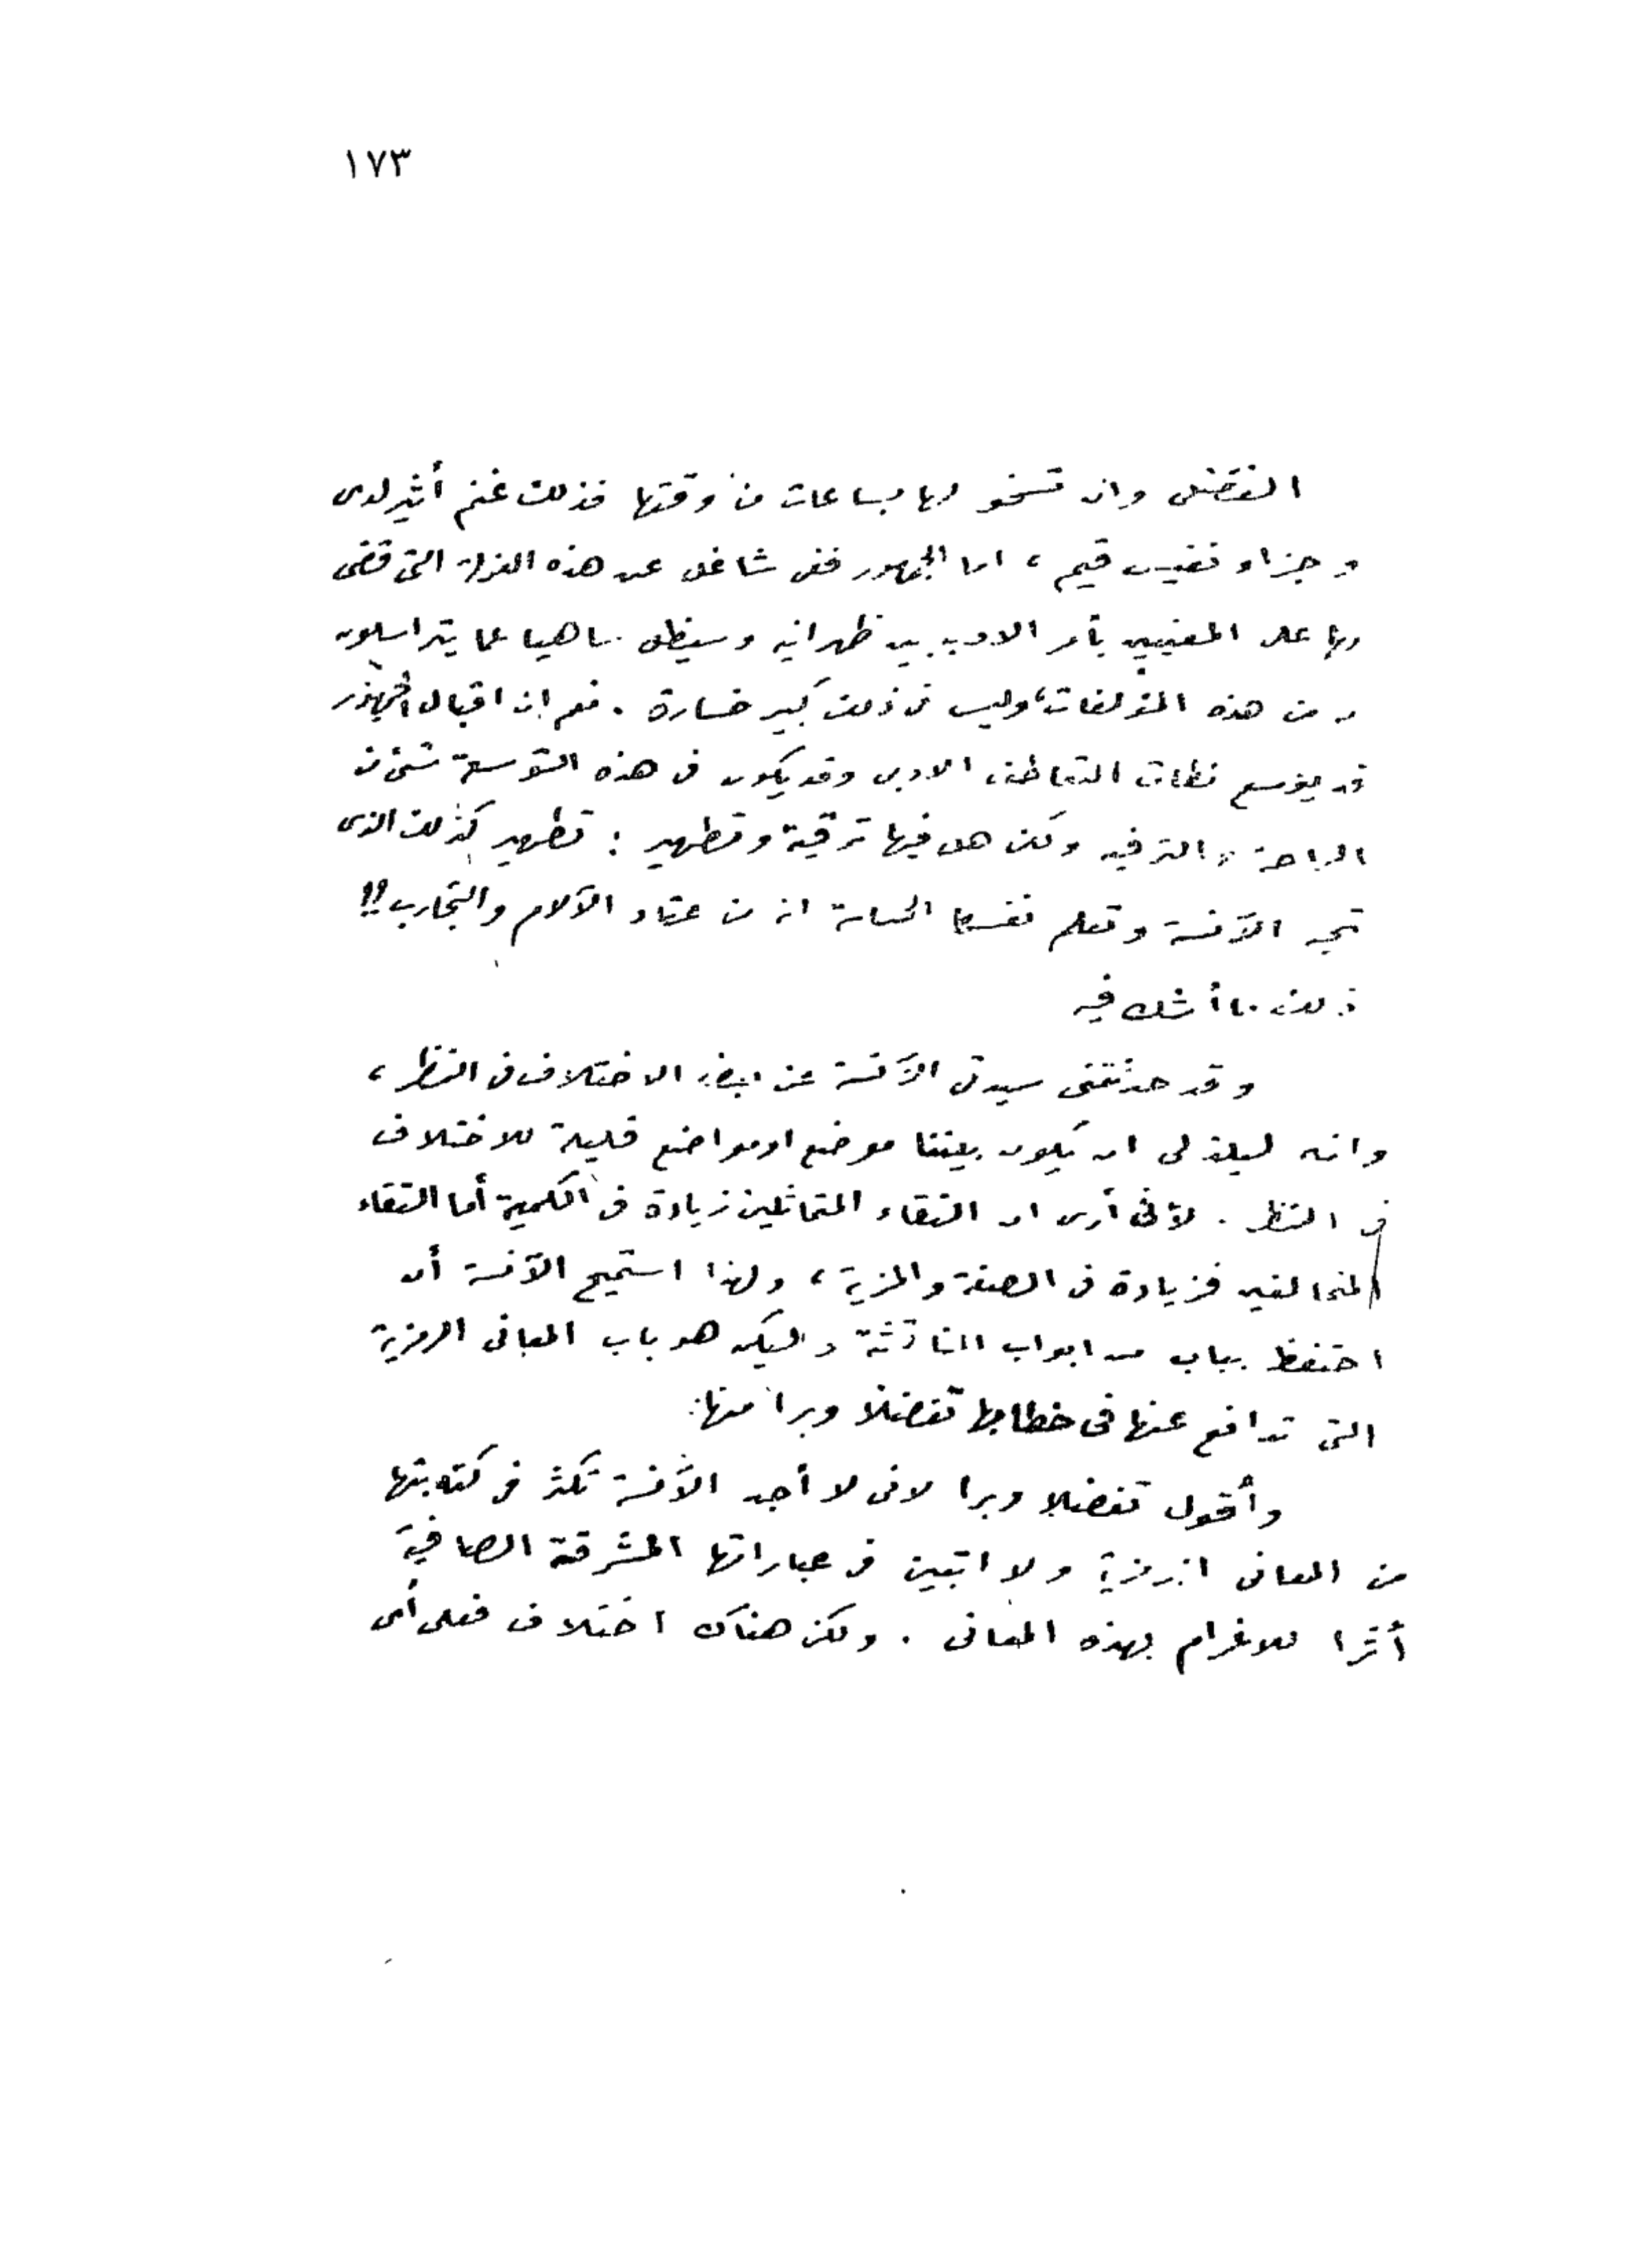 ١٧٣
الفضل وان تسخو لها بساعات من وقتها فذلك غنم أثير لدى
وجزاء نفيس قيم، اما الجمهور ففى شاغل عن هذه العزلة التى قضى
بها على المعنيين بأمر الادب بين ظهرانيه وسيظل ساهيا عما يتراسلون
به من هذه المؤلفات، وليس فى ذلك كبير خسارة. نعم ان اقبال الجمهور
قد يوسع نطاق التعاطف الادبى وقد يكون فى هذه التوسعة شئ من
الراحة والترفيه ولكن هل فيها ترقية وتطهير: تطهير كذلك الذى
تحبه الآنسة وتعلم نفسها الحساسة انه من عتاد الآلام والتجارب!!
ذلك ما أشك فيه
وقد حدثتنى سيدتى الآنسة عن بعض الاختلاف فى النظر،
وانه ليلذ لى ان يكون بيننا موضع او مواضع قليلة للاختلاف
فى النظر. لأنى أرى ان التقاء المتماثلين زيادة فى الكمية أما التقاء
المتخالفين فزيادة فى الصفة والمزية، ولهذا استميح الآنسة أن
احتفظ بباب من ابواب المناقشة وليكن هو باب المعانى الرمزية
التى تدافع عنها فى خطابها تفضلا وبرا منها.
وأقول تفضلا وبرا لانى لا أجد الآنسة تكثر فى كتابتها
من المعانى الرمزية ولا اتبين فى عباراتها المشرقة الصافية
أثرا للاغرام بهذه المعانى. ولكن هناك اختلاف فعلى أى